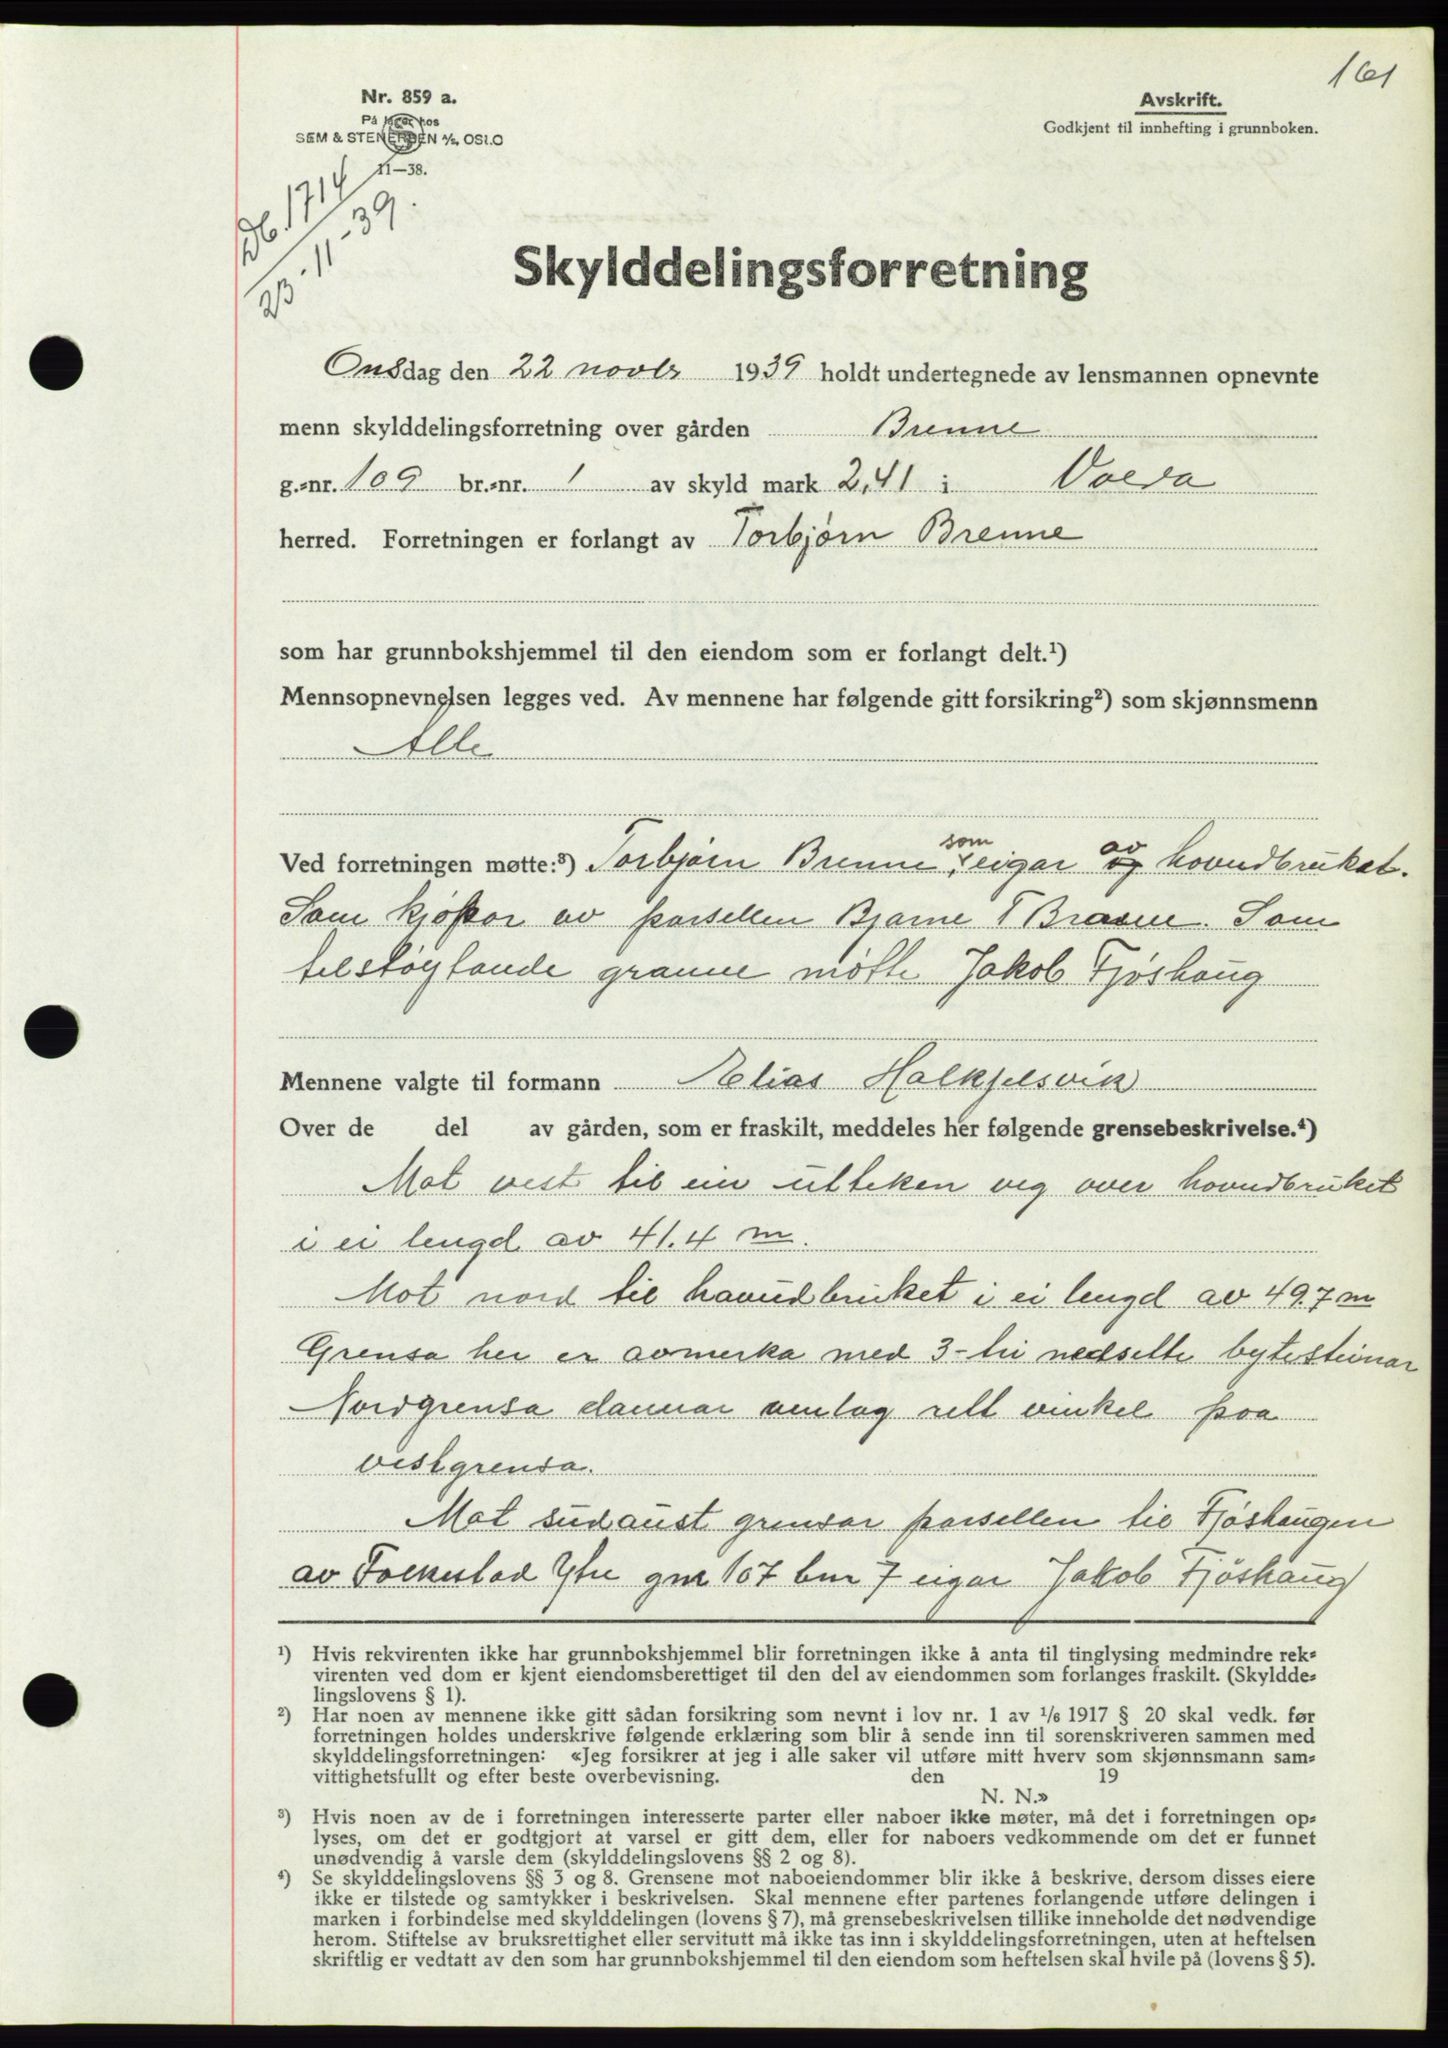 161
Nr. 859 a.
På lager hos
SEM & STENERSEN A/S, OSLO
11—38.
Avskrift.
Godkjent til innhefting i grunnboken.
Db. 1714
23-11-39.
Skylddelingsforretning
Onsdag den 22 novbr 1939 holdt undertegnede av lensmannen opnevnte
menn skylddelingsforretning over gården Brenne
g.=nr. 109 br.=nr. 1 av skyld mark 2,41 i Volda
herred. Forretningen er forlangt av Torbjørn Brenne
som har grunnbokshjemmel til den eiendom som er forlangt delt.¹)
Mennsopnevnelsen legges ved. Av mennene har følgende gitt forsikring²) som skjønnsmenn
Alle
Ved forretningen møtte:³) Torbjørn Brenne, som eigar av hovudbruket.
Som kjøpar av parsellen Bjarne T Brenne. Som
tilstøytande granne møtte Jakob Fjøshaug
Mennene valgte til formann Elias Halkjelsvik
Over de del av gården, som er fraskilt, meddeles her følgende grensebeskrivelse.⁴)
Mot vest til ein utteken veg over hovudbruket
i ei lengd av 41.4 m.
Mot nord til hovudbruket i ei lengd av 49.7 m
Grensa her er avmerka med 3-tri nedsette bytesteinar
Nordgrensa dannar omlag rett vinkel paa
vestgrensa.
Mot sudaust grensar parsellen til Fjøshaugen
av Folkestad Ytre gnr 107 bnr 7 eigar Jakob Fjøshaug
¹) Hvis rekvirenten ikke har grunnbokshjemmel blir forretningen ikke å anta til tinglysing medmindre rek=
virenten ved dom er kjent eiendomsberettiget til den del av eiendommen som forlanges fraskilt. (Skyldde=
lingslovens § 1).
²) Har noen av mennene ikke gitt sådan forsikring som nevnt i lov nr. 1 av 1/6 1917 § 20 skal vedk. før
forretningen holdes underskrive følgende erklæring som blir å sende inn til sorenskriveren sammen med
skylddelingsforretningen: «Jeg forsikrer at jeg i alle saker vil utføre mitt hverv som skjønnsmann sam=
vittighetsfullt og efter beste overbevisning. den 19
N. N.»
³) Hvis noen av de i forretningen interesserte parter eller naboer ikke møter, må det i forretningen op=
lyses, om det er godtgjort at varsel er gitt dem, eller for naboers vedkommende om det er funnet
unødvendig å varsle dem (skylddelingslovens §§ 2 og 8).
⁴) Se skylddelingslovens §§ 3 og 8. Grensene mot naboeiendommer blir ikke å beskrive, dersom disses eiere
ikke er tilstede og samtykker i beskrivelsen. Skal mennene efter partenes forlangende utføre delingen i
marken i forbindelse med skylddelingen (lovens § 7), må grensebeskrivelsen tillike inneholde det nødvendige
herom. Stiftelse av bruksrettighet eller servitutt må ikke tas inn i skylddelingsforretningen, uten at heftelsen
skriftlig er vedtatt av den som har grunnbokshjemmel til den eiendom som heftelsen skal hvile på (lovens § 5).